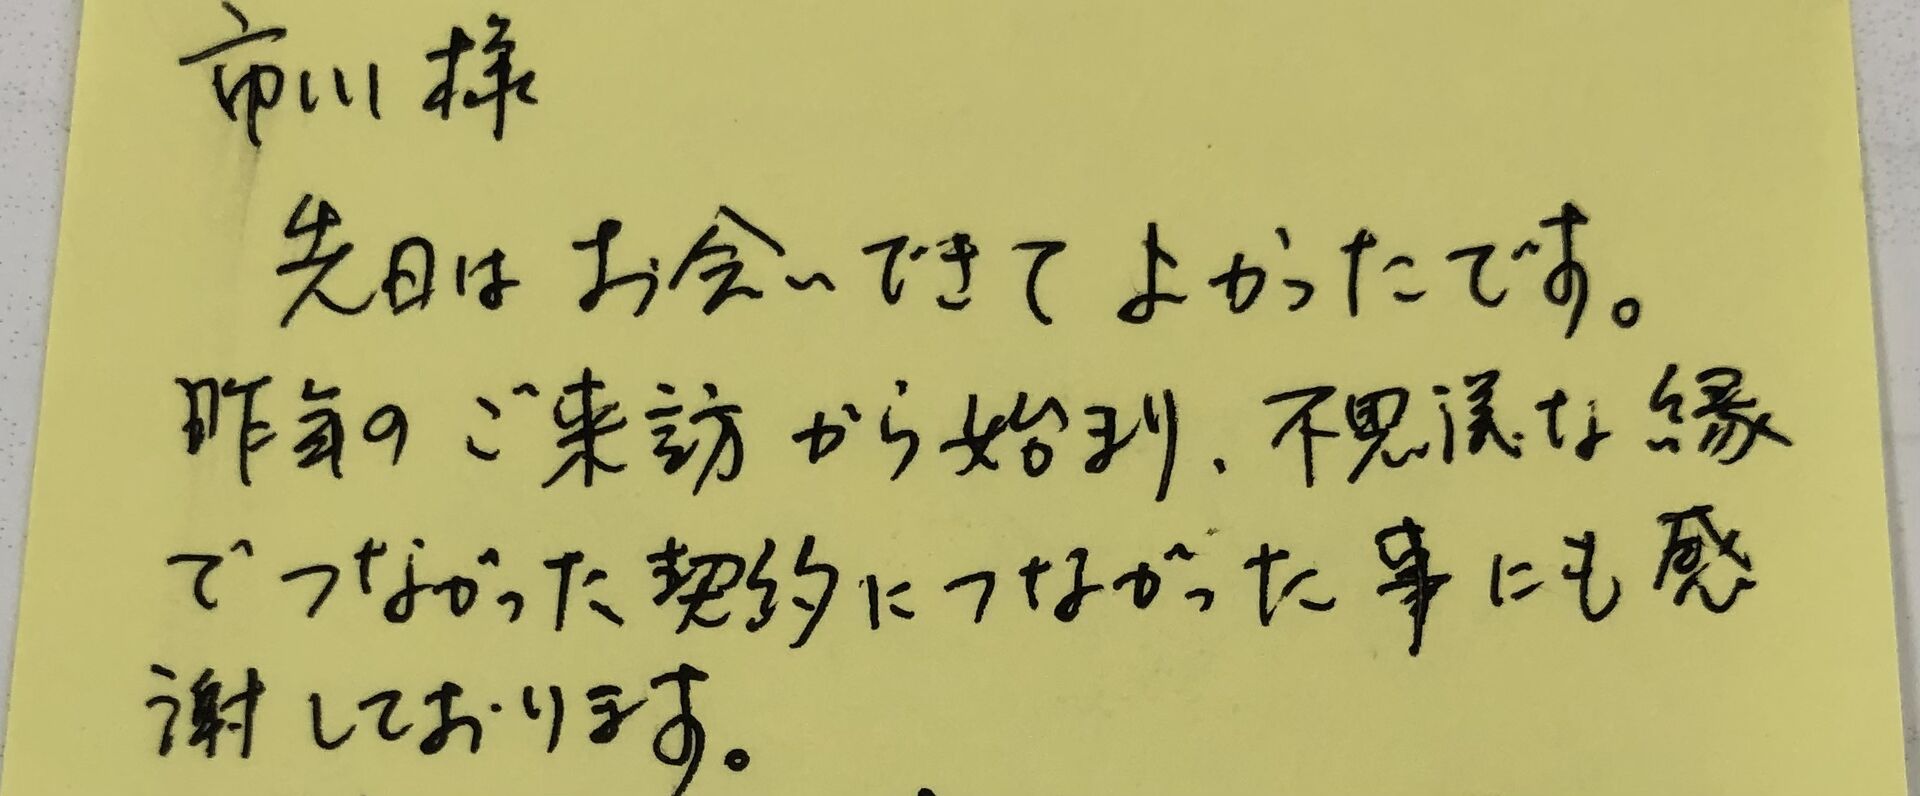 市川様
先日はお会いできてよかったです。
昨年のご来訪から始まり、不思議な縁
でつながった契約につながった事にも感
謝しております。